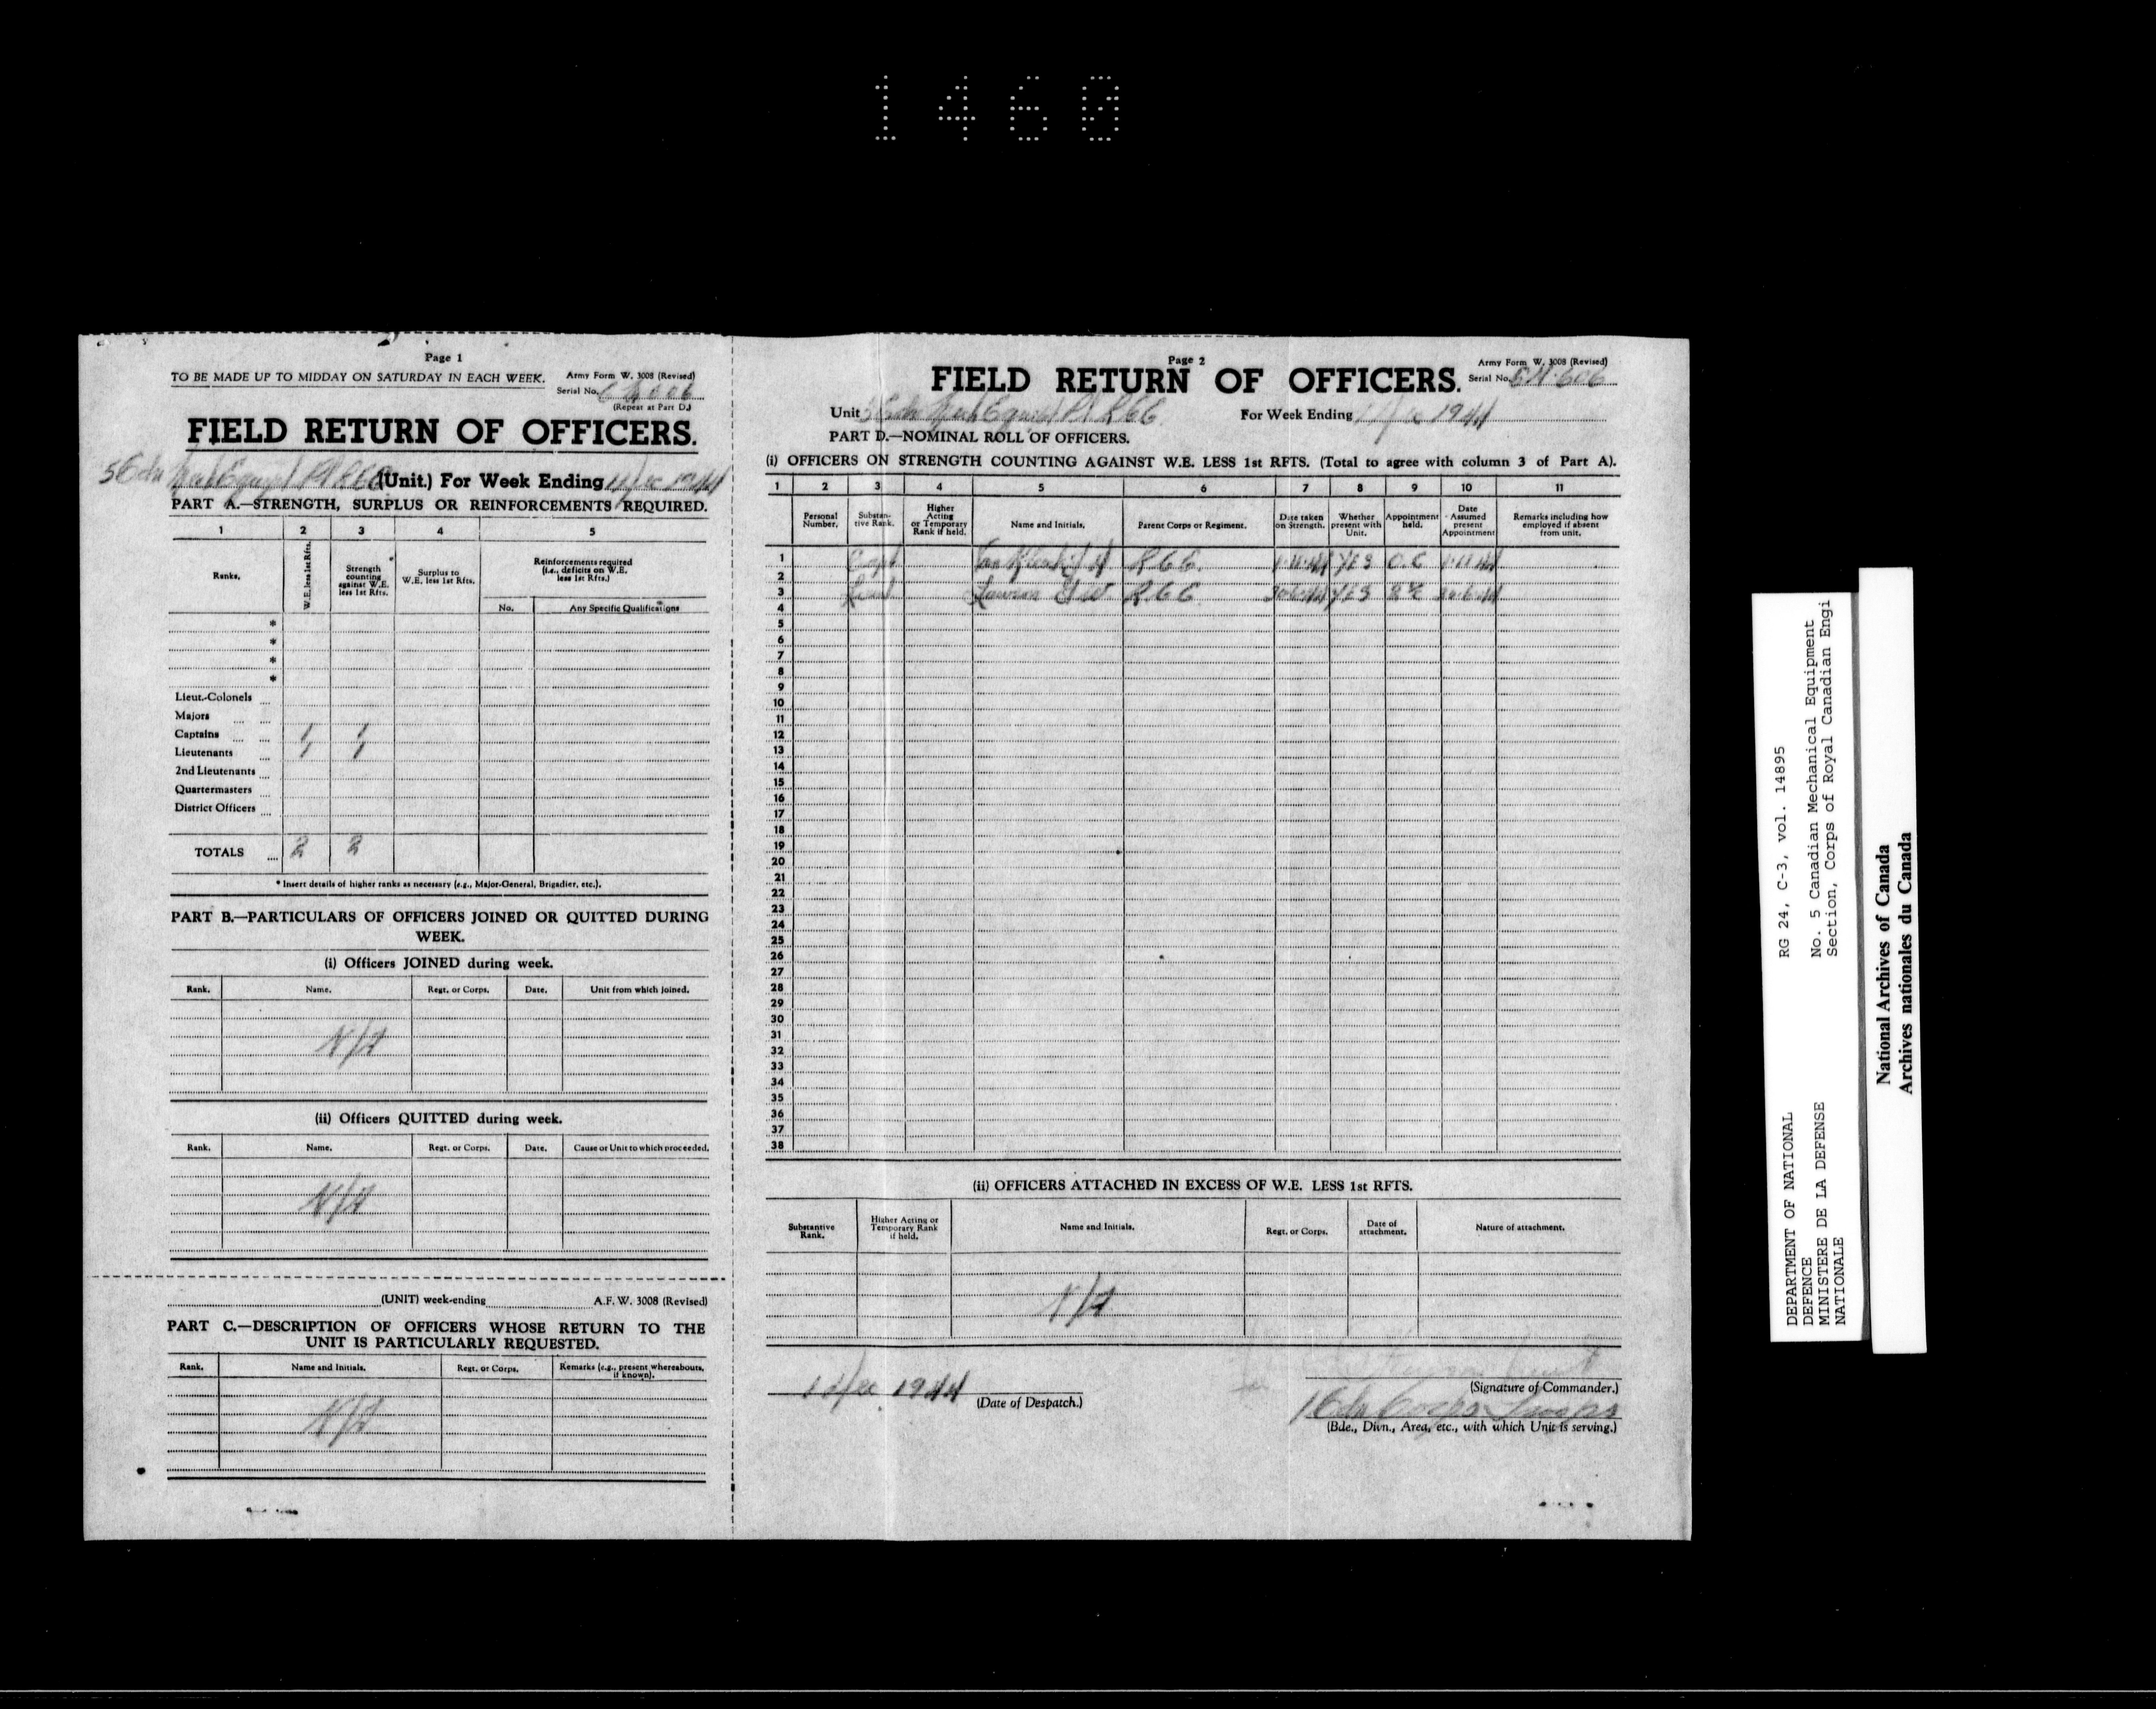 1460
Page 1
TO BE MADE UP TO MIDDAY ON SATURDAY IN EACH WEEK.
Army Form W. 3008 (Revised)
Serial No.
(Repeat at Part D.)
FIELD RETURN OF OFFICERS.
5 Cdn Equip Pl RCE (Unit.) For Week Ending 1944
PART A.—STRENGTH, SURPLUS OR REINFORCEMENTS REQUIRED.
1 2 3 4 5
Ranks.
W.E. less 1st Rfts.
Strength counting against W.E. less 1st Rfts.
Surplus to W.E. less 1st Rfts.
Reinforcements required (i.e., deficits on W.E. less 1st Rfts.)
No. Any Specific Qualifications
*
*
*
*
Lieut.-Colonels ....
Majors .... ....
Captains .... .... 1 1
Lieutenants .... 1 1
2nd Lieutenants ....
Quartermasters ....
District Officers ....
TOTALS .... 2 2
* Insert details of higher ranks as necessary (e.g., Major-General, Brigadier, etc.).
PART B.—PARTICULARS OF OFFICERS JOINED OR QUITTED DURING
WEEK.
(i) Officers JOINED during week.
Rank. Name. Regt. or Corps. Date. Unit from which joined.
N/A
(ii) Officers QUITTED during week.
Rank. Name. Regt. or Corps. Date. Cause or Unit to which proceeded.
N/A
(UNIT) week-ending A.F. W. 3008 (Revised)
PART C.—DESCRIPTION OF OFFICERS WHOSE RETURN TO THE
UNIT IS PARTICULARLY REQUESTED.
Rank. Name and Initials. Regt. or Corps. Remarks (e.g., present whereabouts, if known).
N/A
Page 2
Army Form W. 3008 (Revised)
FIELD RETURN OF OFFICERS.
Serial No. 606
Unit 5 Cdn Mech Equip Pl RCE For Week Ending 1944
PART D.—NOMINAL ROLL OF OFFICERS.
(i) OFFICERS ON STRENGTH COUNTING AGAINST W.E. LESS 1st RFTS. (Total to agree with column 3 of Part A).
1 2 3 4 5 6 7 8 9 10 11
Personal Number.
Substantive Rank.
Higher Acting or Temporary Rank if held.
Name and Initials.
Parent Corps or Regiment.
Date taken on Strength.
Whether present with Unit.
Appointment held.
Date Assumed present Appointment
Remarks including how employed if absent from unit.
1 Capt RCE YES O.C
2
3 Lieut RCE YES
4
5
6
7
8
9
10
11
12
13
14
15
16
17
18
19
20
21
22
23
24
25
26
27
28
29
30
31
32
33
34
35
36
37
38
(ii) OFFICERS ATTACHED IN EXCESS OF W.E. LESS 1st RFTS.
Substantive Rank. Higher Acting or Temporary Rank if held. Name and Initials. Regt. or Corps. Date of attachment. Nature of attachment.
N/A
1 Dec 1944
(Date of Despatch.)
(Signature of Commander.)
1 Cdn Corps Troops
(Bde., Divn., Area, etc., with which Unit is serving.)
DEPARTMENT OF NATIONAL
DEFENCE
MINISTERE DE LA DEFENSE
NATIONALE
RG 24, C-3, vol. 14895
No. 5 Canadian Mechanical Equipment
Section, Corps of Royal Canadian Engi
National Archives of Canada
Archives nationales du Canada